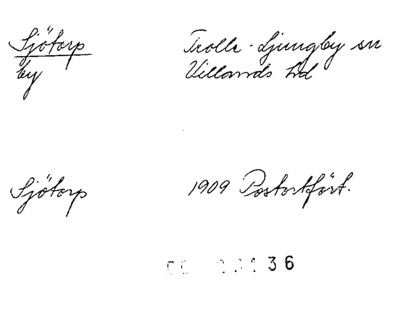 Sjötorp Trolle-Ljungby sn
by Villands hd
Sjötorp 1909 Postortfört.
36